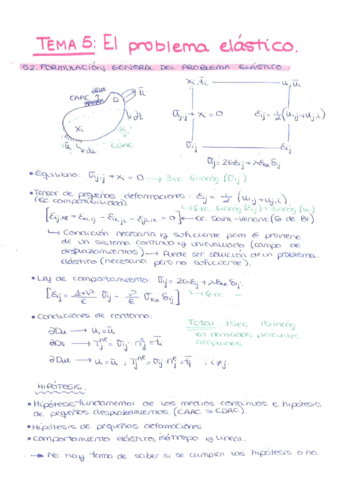 TEMA 5: El problema elástico.
5.2. FORMULACIÓN GENERAL DEL PROBLEMA ELÁSTICO.
xᵢ, t̄ᵢ uᵢ, ūᵢ
CAAC D t̄ᵢ
xᵢ ∂Dt σᵢⱼ,ⱼ + xᵢ = 0 εᵢⱼ = 1/2 (uᵢ,ⱼ + uⱼ,ᵢ)
D'
ūᵢ ∂Du CDAC σᵢⱼ εᵢⱼ
σᵢⱼ = 2Gεᵢⱼ + λεₖₖ δᵢⱼ
• Equilibrio: σᵢⱼ,ⱼ + xᵢ = 0 → 3 ec 6 incóg (σᵢⱼ)
• Tensor de pequeñas deformaciones: εᵢⱼ = 1/2 (uᵢ,ⱼ + uⱼ,ᵢ)
(EC compatibilidad) ↳ 6 ec, 6 incóg (εᵢⱼ) + 3 incóg (uᵢ)
→ Ec. Saint-Venant (6 de 81)
↳ Condición necesaria y suficiente para ε proviene
de un sistema continuo y univaluado (campo de
desplazamientos) → Puede ser solución de un problema
elástico (necesaria pero no suficiente).
• Ley de comportamiento: σᵢⱼ = 2Gεᵢⱼ + λεₖₖ δᵢⱼ.
[εᵢⱼ = (1+ν)/E σᵢⱼ - ν/E σₖₖ δᵢⱼ] ↳ 6 ec
• Condiciones de contorno:
∂Du → uᵢ = ūᵢ Total: 15 ec 15 incóg
∂Dt → Tⱼⁿᵉ = σᵢⱼ · nᵢᵉ = t̄ⱼ en derivadas parciales
acopladas
∂Dut → uᵢ = ūᵢ, Tⱼⁿᵉ = σᵢⱼ · nᵢᵉ = t̄ⱼ; i ≠ j.
HIPÓTESIS.
• Hipótesis fundamental de los medios continuos e hipótesis
de pequeños desplazamientos. (CAAC ≃ CDAC).
• Hipótesis de pequeñas deformaciones
• Comportamiento elástico, isótropo y lineal.
→ No hay forma de saber si se cumplen las hipótesis o no